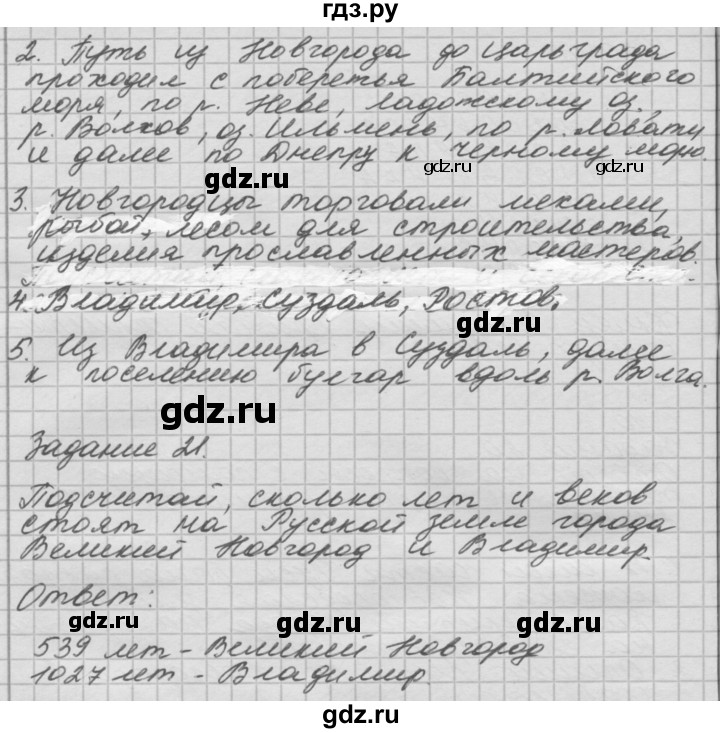 гдз.ру
2. Путь из Новгорода до Царьграда
проходил с побережья Балтийского
моря, по р. Неве, Ладожскому оз.,
р. Волхов, оз. Ильмень, по р. Ловати
и далее по Днепру к Чёрному морю.
gdz.ru gdz.ru gdz.ru
3. Новгородцы торговали мехами,
рыбой, лесом для строительства,
изделия прославленных мастеров.
4. Владимир, Суздаль, Ростов.
gdz.ru
5. Из Владимира в Суздаль, далее
к поселению булгар вдоль р. Волга.
gdz.ru gdz.ru
Задание 21.
Подсчитай, сколько лет и веков
стоят на Русской земле города
Великий Новгород и Владимир.
Ответ:
gdz.ru gdz.ru gdz.ru
539 лет - Великий Новгород
1027 лет - Владимир.
gdz.ru